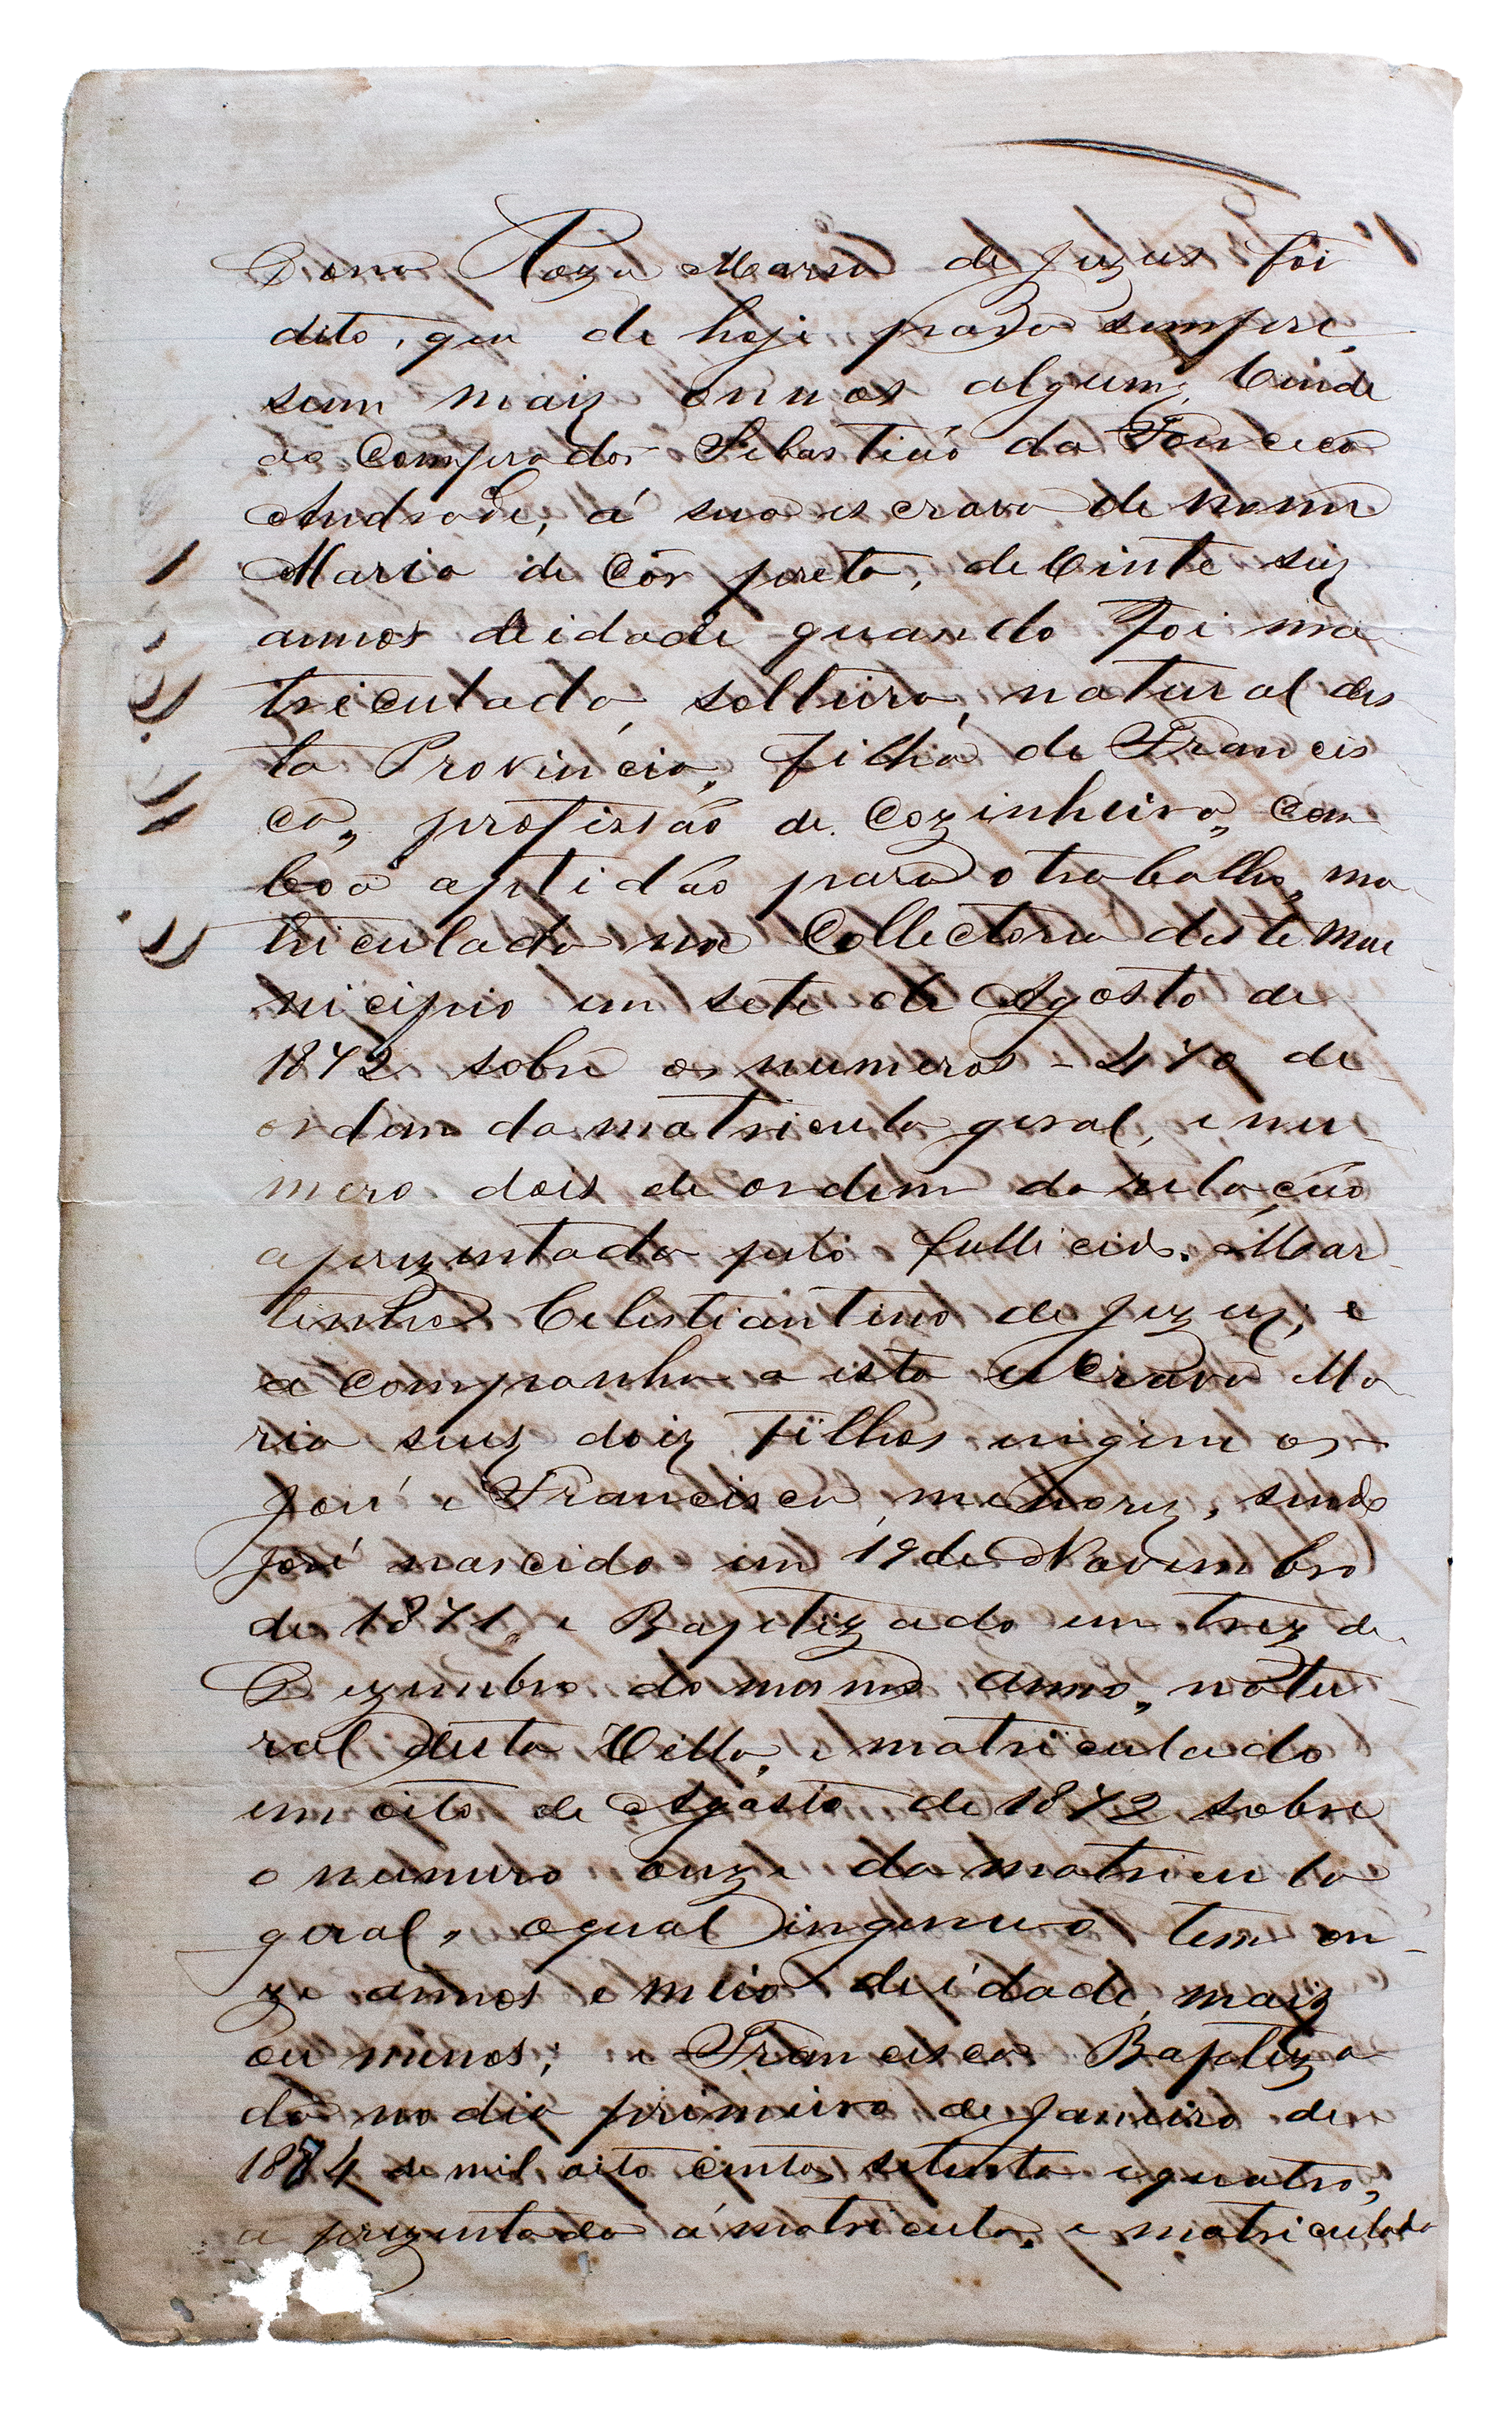 Dona Roza Maria de Jezus foi
dito, que de hoje para sempre,
sem mais onnus algum, vende
ao Comprador Sebastião da Fonceca
Andrade, á sua escrava de nome
Maria de Côr preta, de vinte seis
annos de idade quando foi ma-
triculada, solteira, natural des-
ta Provincia, filha de Francis-
ca, profissão de Cozinheira, com
boa aptidão para o trabalho, ma-
triculada na Collectoria deste Mu-
nicipio em sete de Agosto de
1872 sobre os numeros - 470 de
ordem da matricula geral, e nu-
mero dois de ordem da relação
aprezentada pelo fallicido Mar-
tinho Celestiantino de Jezus; e
acompanha a esta escrava Ma-
ria seus doiz filhos ingenuos
José e Francisca, menores, sendo
José nascido em 19 de Novembro
de 1871, e Baptizado em trez de
Dezembro do mesmo anno, natu-
ral desta Villa, e matriculado
em oito de Agosto de 1872 sobre
o numero onze da matricula
geral, o qual ingenuo tem on-
ze annos e meio de idade, maiz
ou menos; e Francisca Baptiza
da no dia primeiro de Janeiro de
1874 de mil oito centos setenta e quatro,
aprezentada á matricula, e matriculada